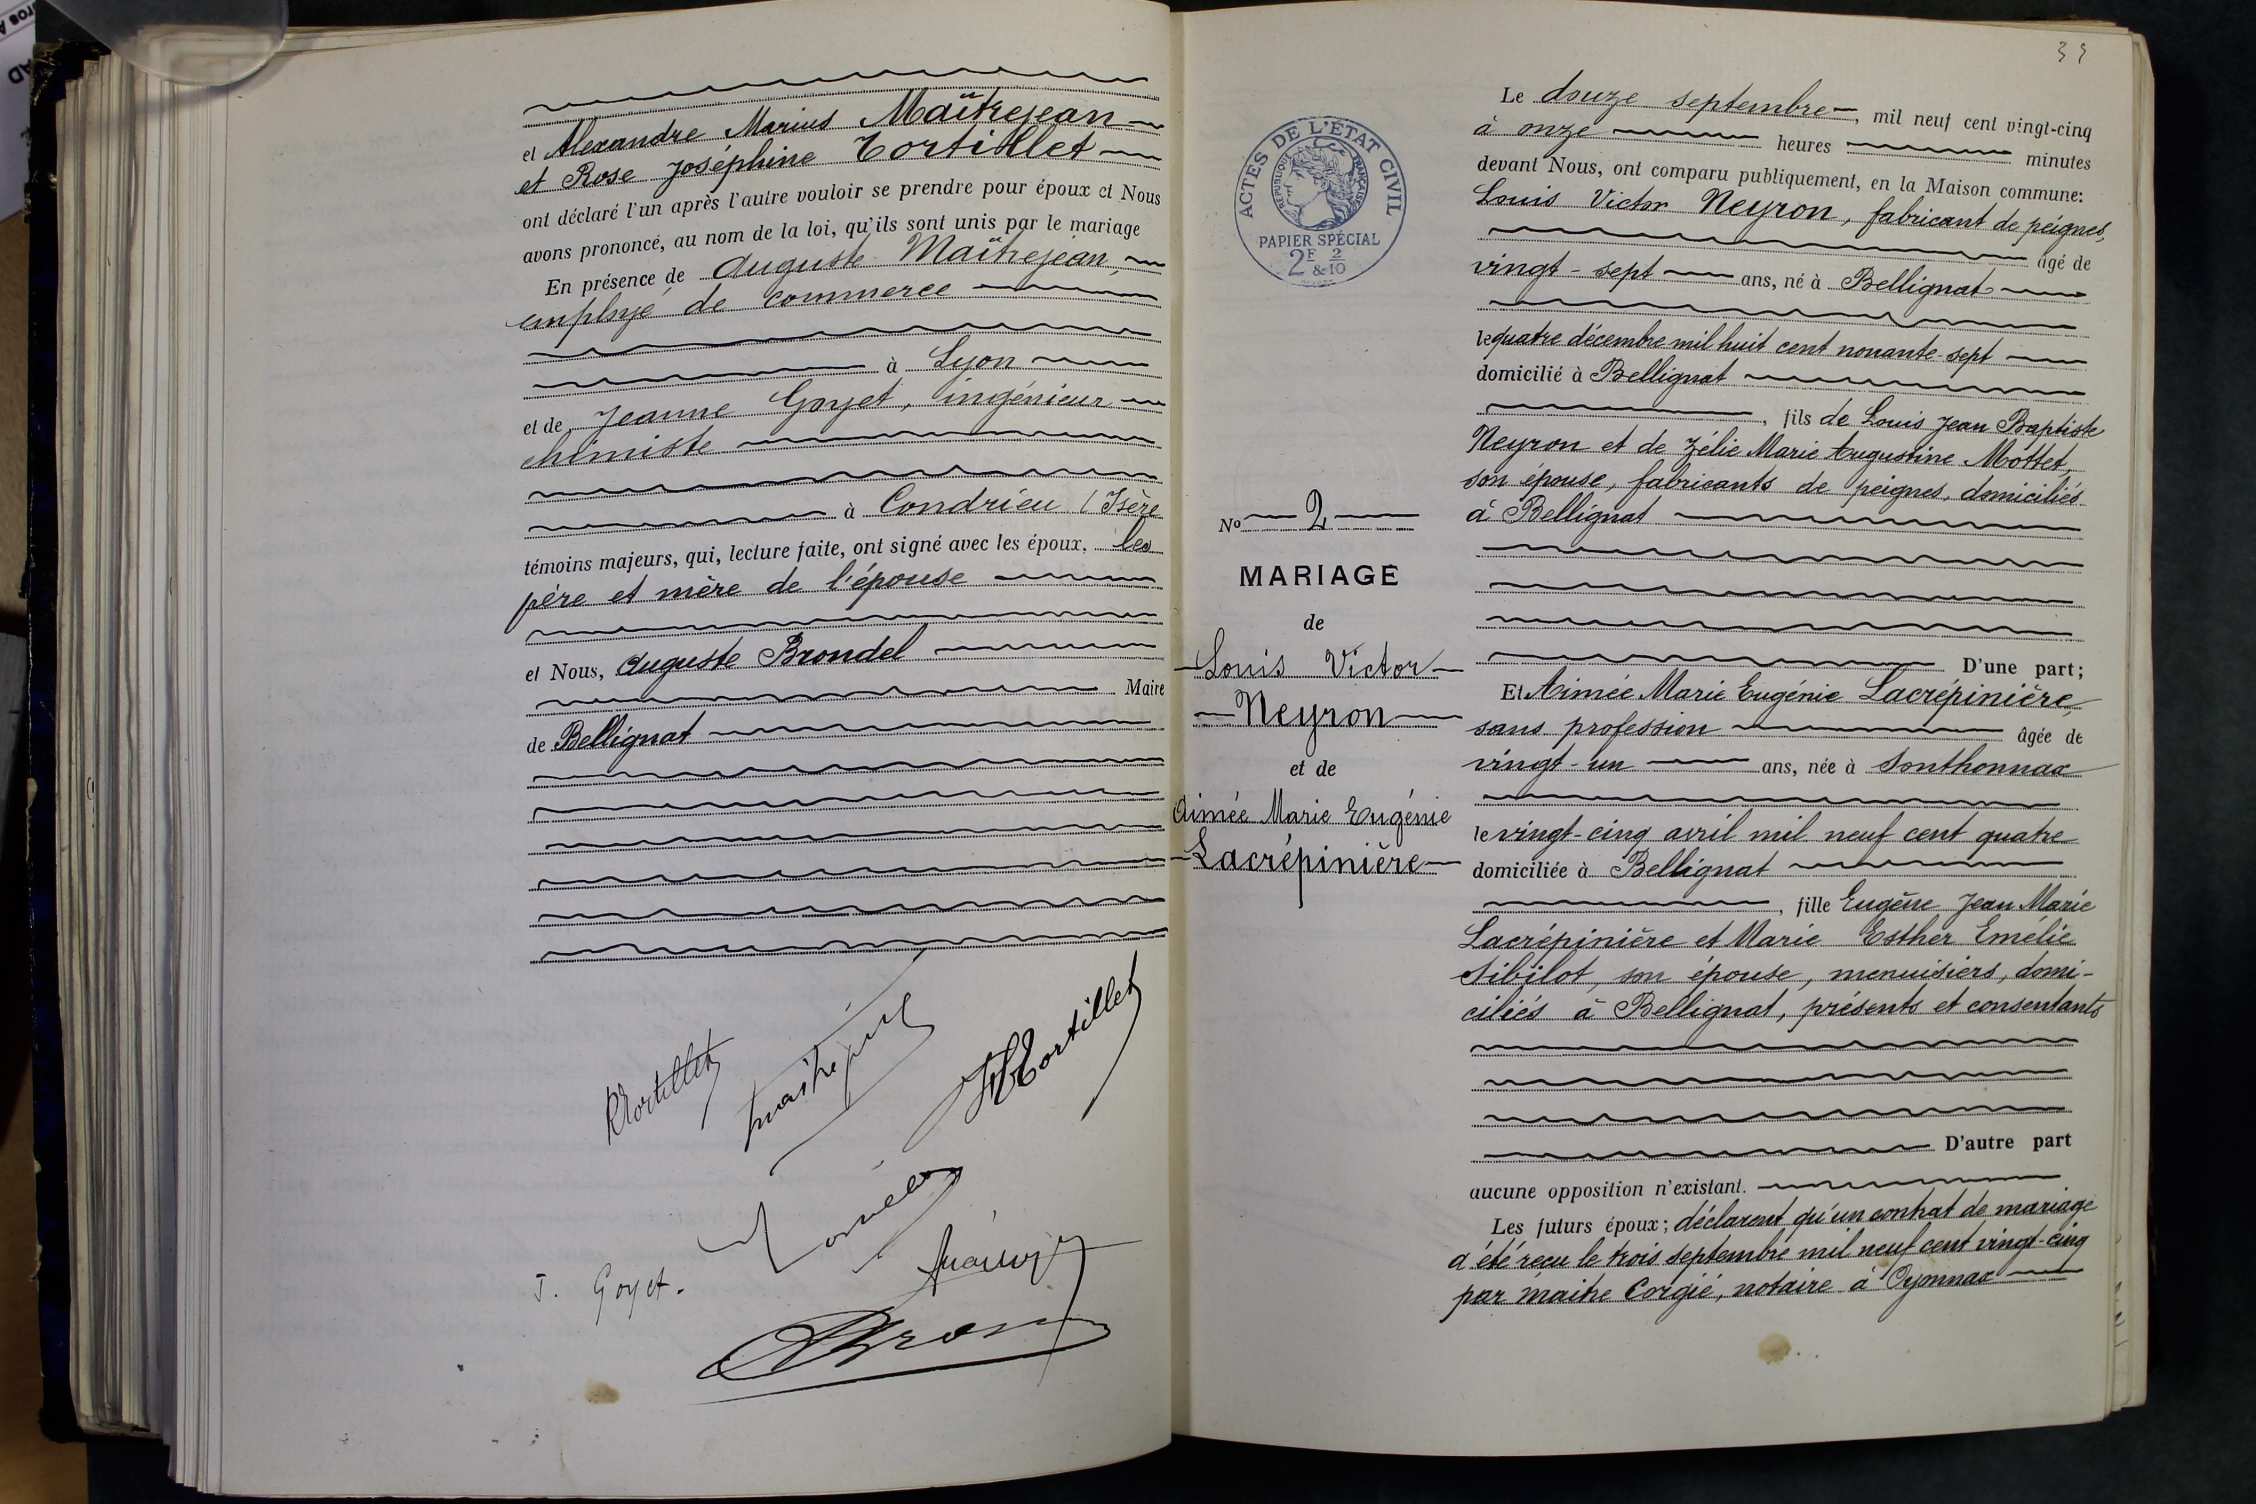 et Alexandre Marius Maîtrejean
et Rose Joséphine Tortillet
ont déclaré l'un après l'autre vouloir se prendre pour époux et Nous
avons prononcé, au nom de la loi, qu'ils sont unis par le mariage
En présence de Auguste Maîtrejean,
employé de commerce
à Lyon
et de Jeanne Goyet, ingénieur
chimiste
à Condrieu (Isère
témoins majeurs, qui, lecture faite, ont signé avec les époux, les
père et mère de l'épouse
et Nous, Auguste Brondel
Maire
de Bellignat
RTortillet
Tortillet
J. Goyet.
39
ACTES DE L'ÉTAT CIVIL
RÉPUBLIQUE FRANÇAISE
PAPIER SPÉCIAL
2F 2
& 10
No 2
MARIAGE
de
Louis Victor
Neyron
et de
Aimée Marie Eugénie
Lacrépinière
Le douze septembre, mil neuf cent vingt-cinq
à onze heures minutes
devant Nous, ont comparu publiquement, en la Maison commune:
Louis Victor Neyron, fabricant de peignes,
âgé de
vingt-sept ans, né à Bellignat
le quatre décembre mil huit cent nonante-sept
domicilié à Bellignat
, fils de Louis Jean Baptiste
Neyron et de Zélie Marie Augustine Mottet,
son épouse, fabricants de peignes, domiciliés
à Bellignat
D'une part;
Et Aimée Marie Eugénie Lacrépinière,
sans profession âgée de
vingt-un ans, née à Sonthonnax
le vingt-cinq avril mil neuf cent quatre
domiciliée à Bellignat
, fille Eugène Jean Marie
Lacrépinière et Marie Esther Emélie
Sibilot, son épouse, menuisiers, domi-
ciliés à Bellignat, présents et consentants
D'autre part
aucune opposition n'existant.
Les futurs époux; déclarent qu'un contrat de mariage
a été reçu le trois septembre mil neuf cent vingt-cinq
par maître Corgié, notaire à Oyonnax